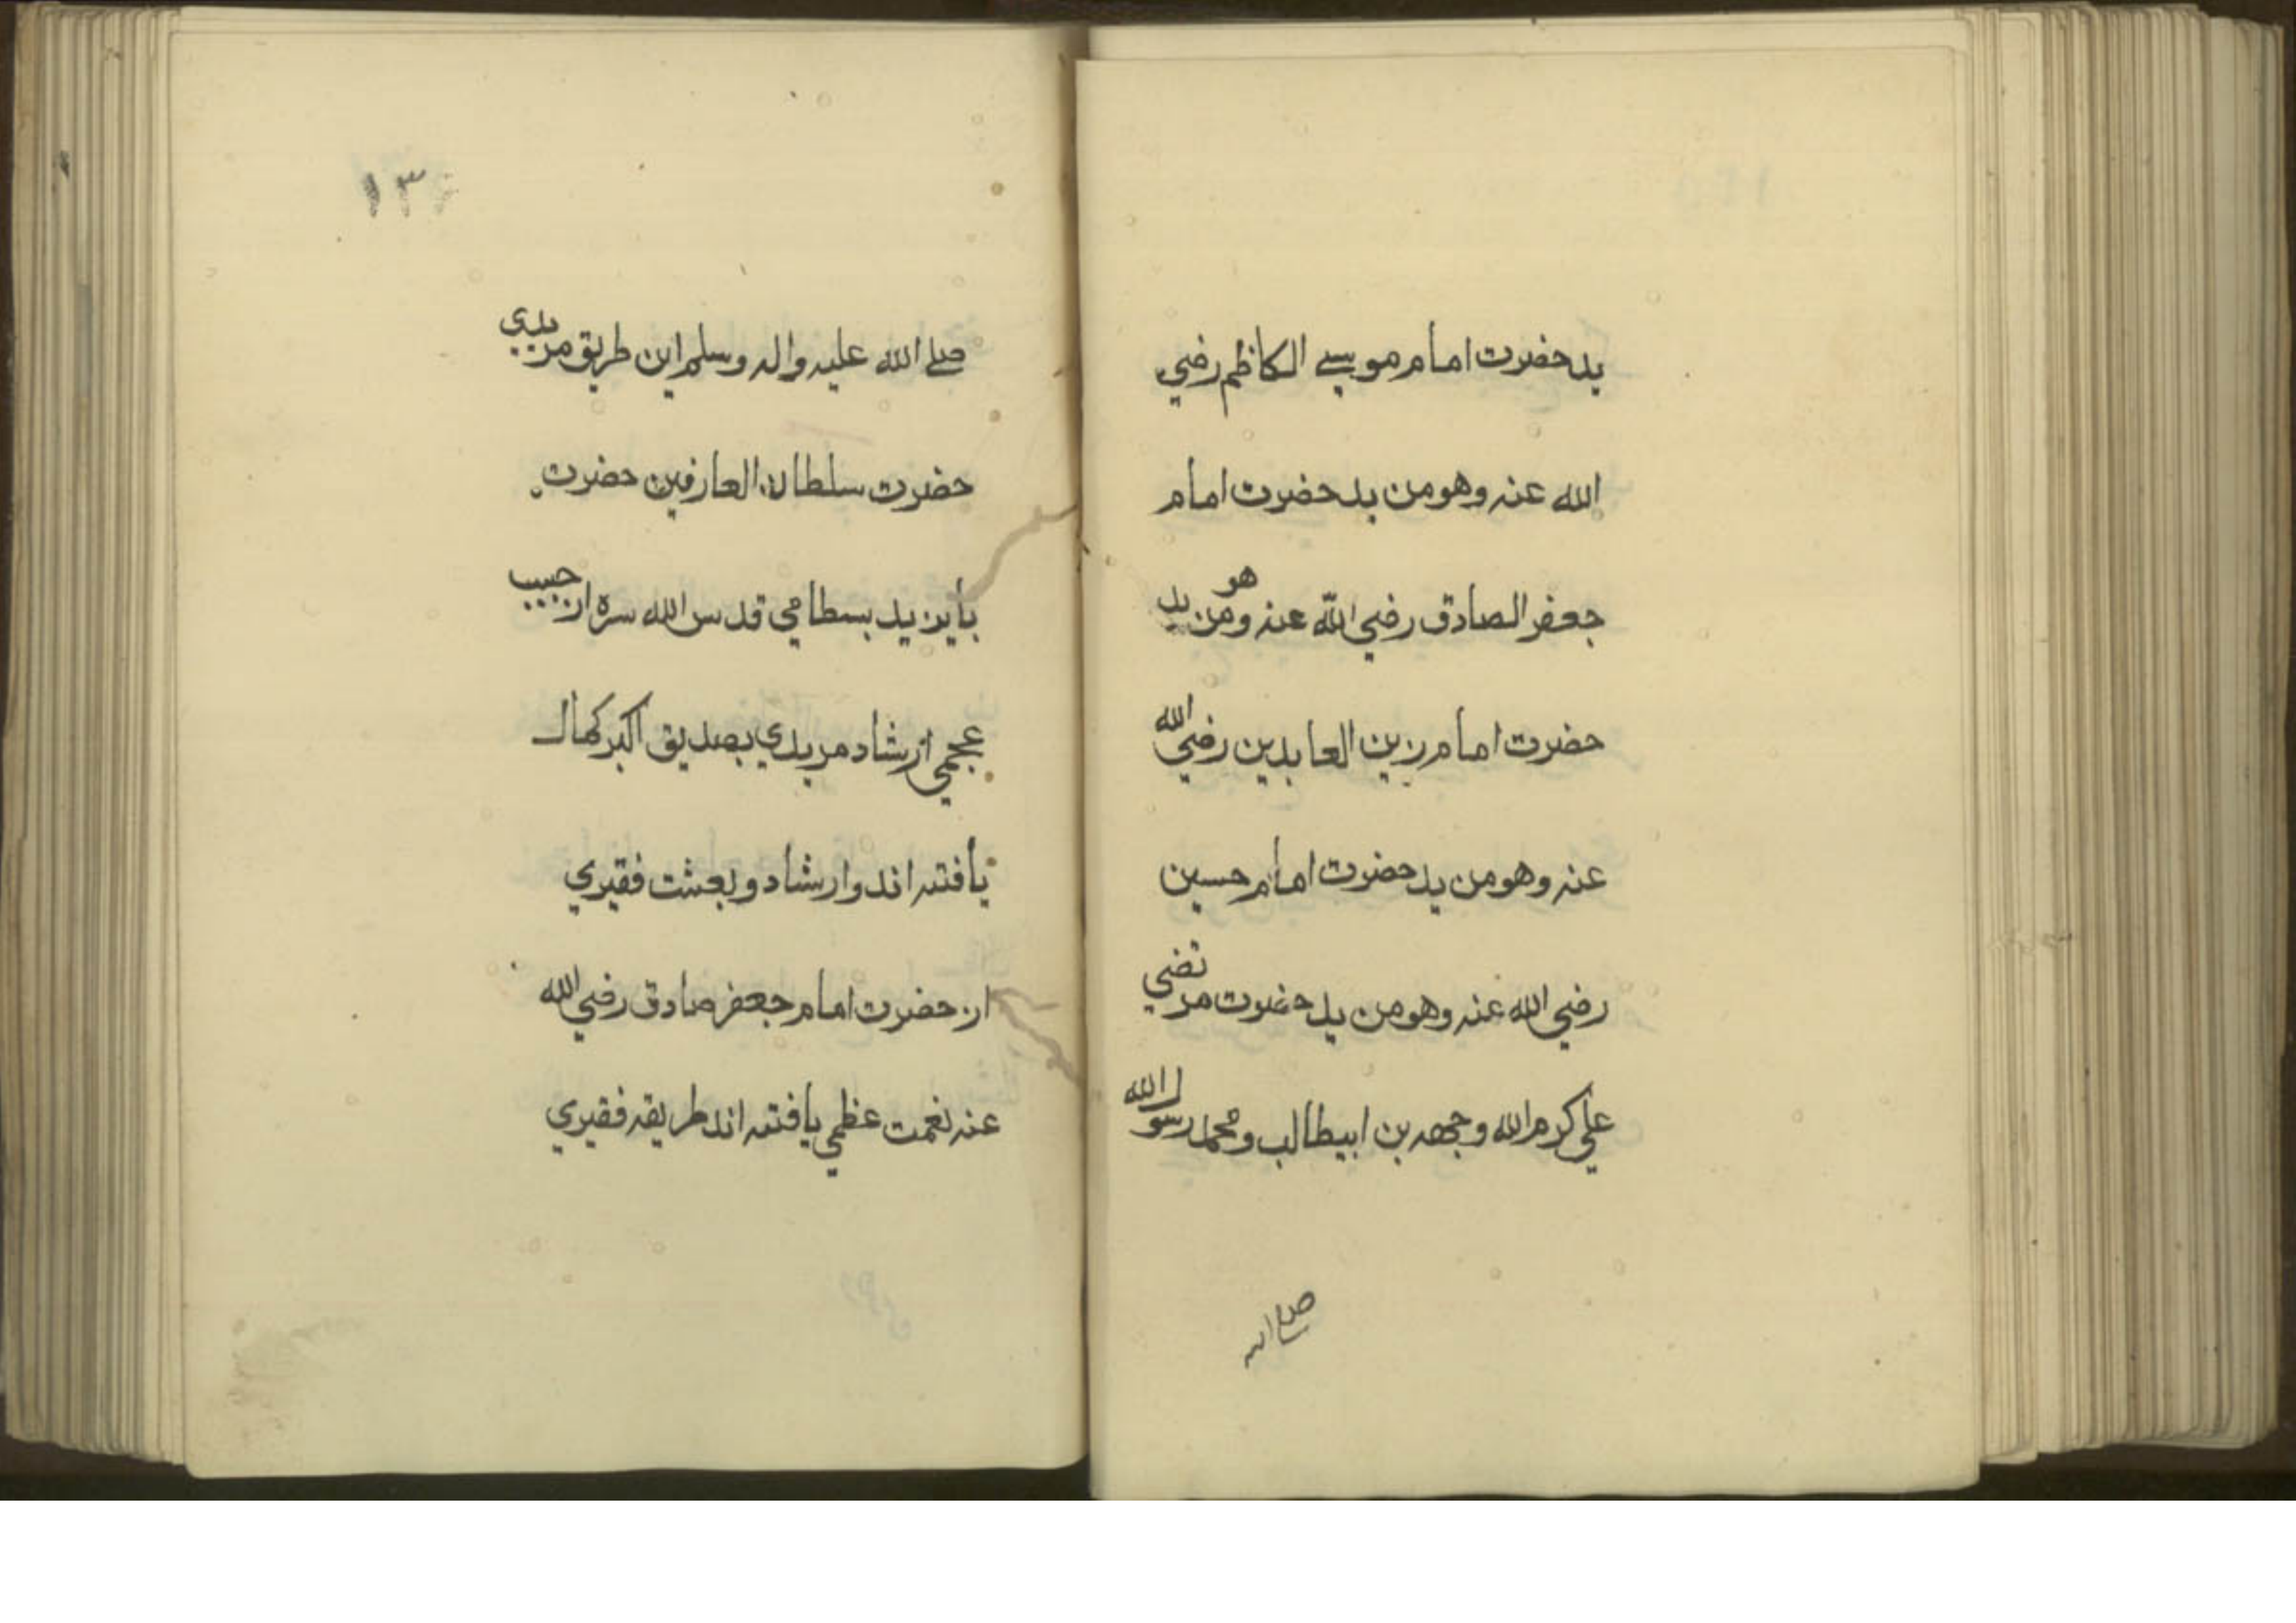 يد حضرت امام موسے الكاظم رضي
الله عنه وهو من يد حضرت امام
جعفر الصادق رضي الله عنه وهو من يد
حضرت امام زين العابدين رضي الله
عنه وهو من يد حضرت امام حسين
رضي الله عنه وهو من يد حضرت مرتضي
علي كرم الله وجهه بن ابيطالب و محمد رسول الله
صلے الله
صلے الله عليه واله وسلم اين طريق مريدي
حضرت سلطان العارفين حضرت
بايزيد بسطامي قدس الله سره از حبيب
عجمي ارشاد مريدي بصديق اكبر كمال
يافته اند وارشاد و بعثت فقيري
از حضرت امام جعفر صادق رضي الله
عنه نعمت عظمي يافته اند طريقه فقيري